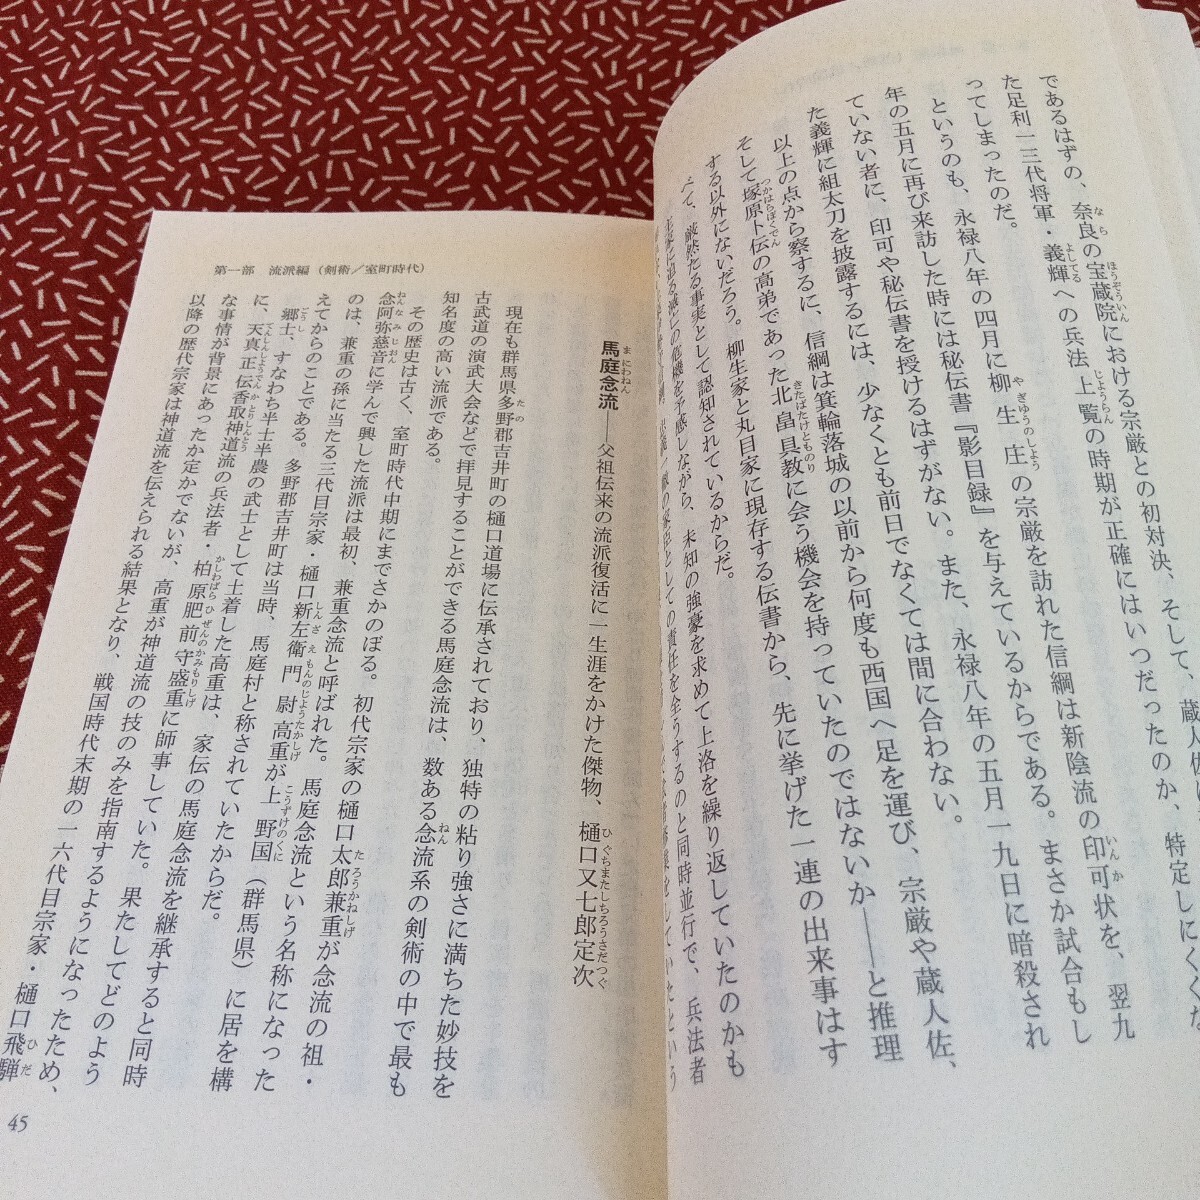 特定しにくくな
であるはずの、奈良の宝蔵院における宗厳との初対決、そして、蔵人佐
た足利一三代将軍・義輝への兵法上覧の時期が正確にはいつだったのか、
ってしまったのだ。
というのも、永禄八年の四月に柳生庄の宗厳を訪れた信綱は新陰流の印可状を、翌九
年の五月に再び来訪した時には秘伝書『影目録』を与えているからである。まさか試合もし
ていない者に、印可や秘伝書を授けるはずがない。また、永禄八年の五月一九日に暗殺され
た義輝に組太刀を披露するには、少なくとも前日でなくては間に合わない。
以上の点から察するに、信綱は箕輪落城の以前から何度も西国へ足を運び、宗厳や蔵人佐、
そして塚原卜伝の高弟であった北畠具教に会う機会を持っていたのではないか――と推理
する以外にないだろう。柳生家と丸目家に現存する伝書から、先に挙げた一連の出来事はす
べて、厳然たる事実として認知されているからだ。
主家に迫る滅亡の危機を予感しながら、未知の強豪を求めて上洛を繰り返していたのかも
としての責任を全うするのと同時並行で、兵法者
をしていたという
第一部 流派編(剣術/室町時代)
馬庭念流――父祖伝来の流派復活に一生涯をかけた傑物、樋口又七郎定次
現在も群馬県多野郡吉井町の樋口道場に伝承されており、独特の粘り強さに満ちた妙技を
古武道の演武大会などで拝見することができる馬庭念流は、数ある念流系の剣術の中で最も
知名度の高い流派である。
その歴史は古く、室町時代中期にまでさかのぼる。初代宗家の樋口太郎兼重が念流の祖・
念阿弥慈音に学んで興した流派は最初、兼重念流と呼ばれた。馬庭念流という名称になった
のは、兼重の孫に当たる三代目宗家・樋口新左衛門尉高重が上野国(群馬県)に居を構
えてからのことである。多野郡吉井町は当時、馬庭村と称されていたからだ。
郷士、すなわち半士半農の武士として土着した高重は、家伝の馬庭念流を継承すると同時
に、天真正伝香取神道流の兵法者・柏原肥前守盛重に師事していた。果たしてどのよう
な事情が背景にあったか定かでないが、高重が神道流の技のみを指南するようになったため、
以降の歴代宗家は神道流を伝えられる結果となり、戦国時代末期の一六代目宗家・樋口飛騨
45